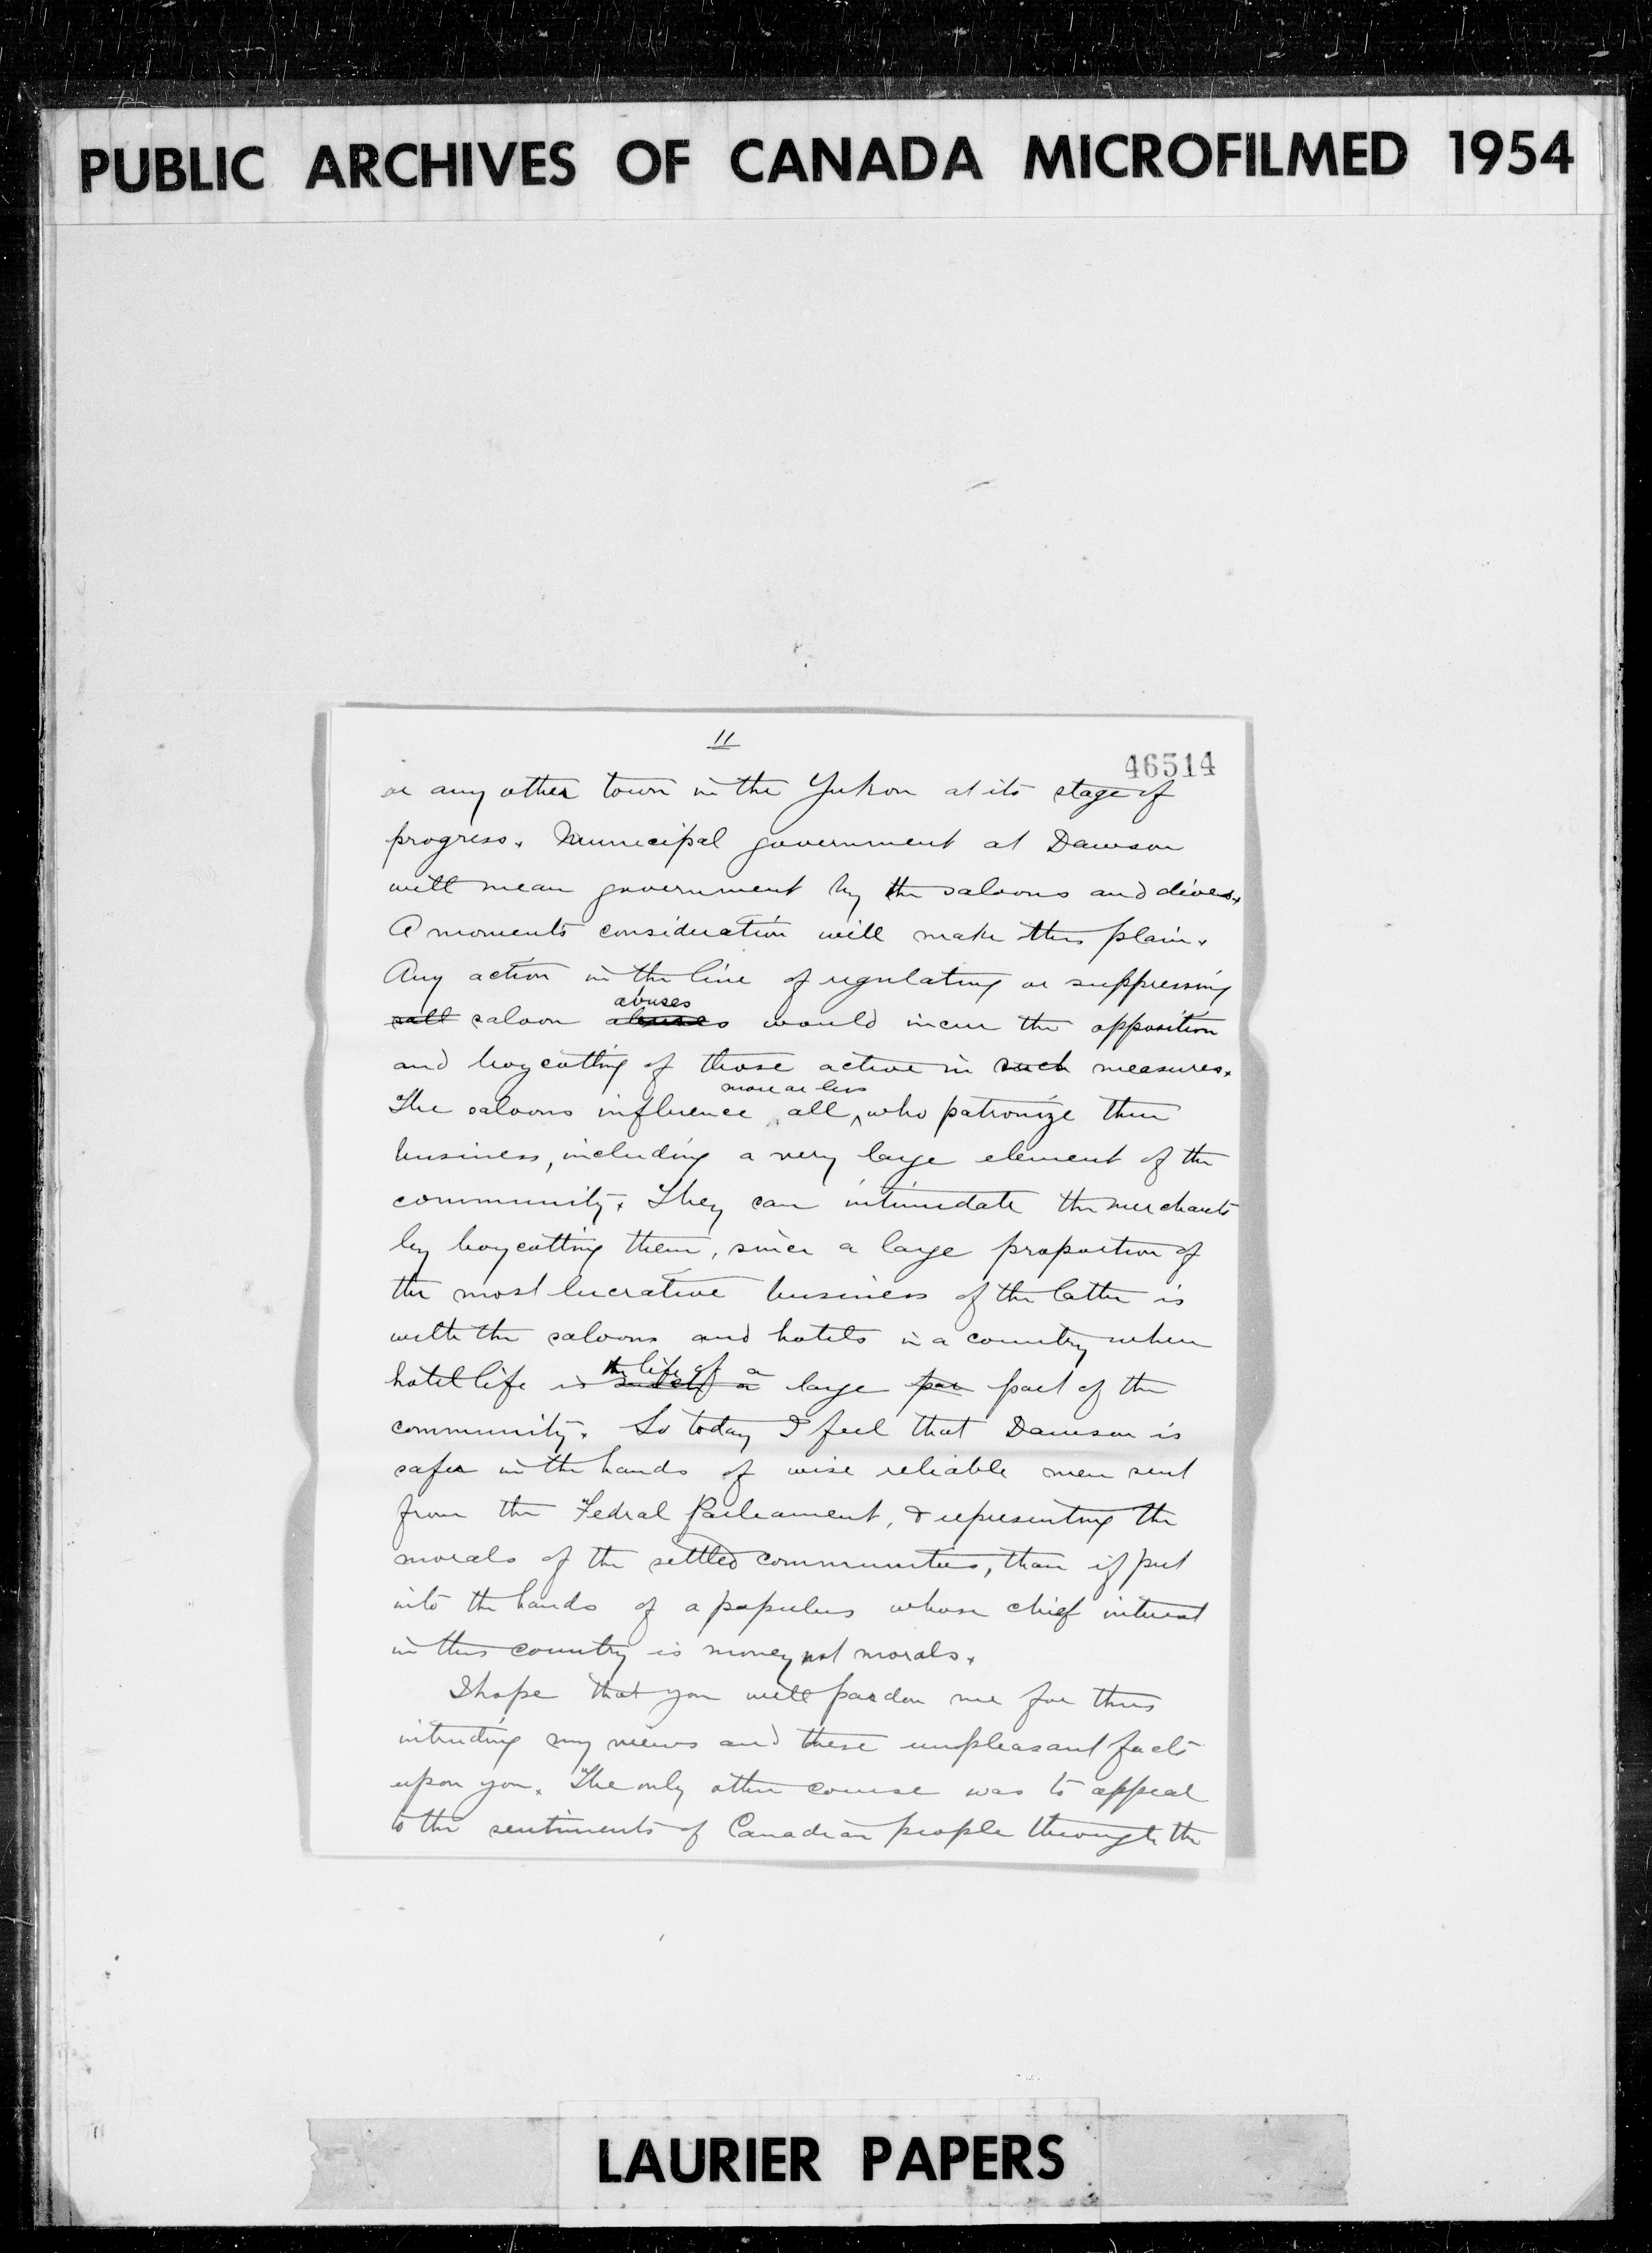 PUBLIC ARCHIVES OF CANADA MICROFILMED 1954
11
46514
or any other town in the Yukon at its stage of
progress. Municipal government at Dawson
will mean government by the saloons and dives.
A moments consideration will make this plain.
Any action in the line of regulating or suppressing
abuses
saloon abuses would incur the opposition
and boycotting of those active in such measures.
more or less
The saloons influence all who patronize their
business, including a very large element of the
community. They can intimidate the merchants
by boycotting them, since a large proportion of
the most lucrative business of the latter is
with the saloons and hotels in a country where
the life of a
hotel life is large par part of the
community. So today I feel that Dawson is
safer in the hands of wise reliable men sent
from the Fedral Parliament, & representing the
morals of the settled communities, than if put
into the hands of a populus whose chief interest
in this country is money not morals.
I hope that you will pardon me for thus
intruding my views and these unpleasant facts
upon you. The only other course was to appeal
to the sentiments of Canadian people through the
LAURIER PAPERS